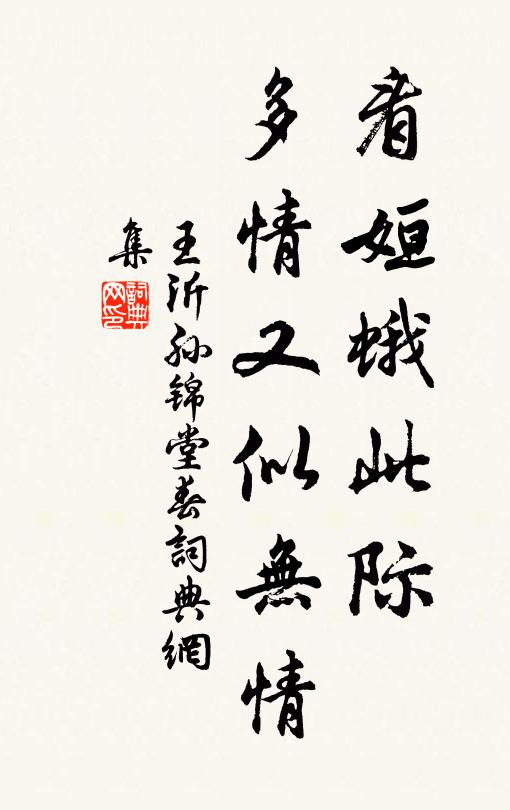 看姮蛾此际
多情又似無情
王沂孙锦堂春詞典網
集
詞典网印